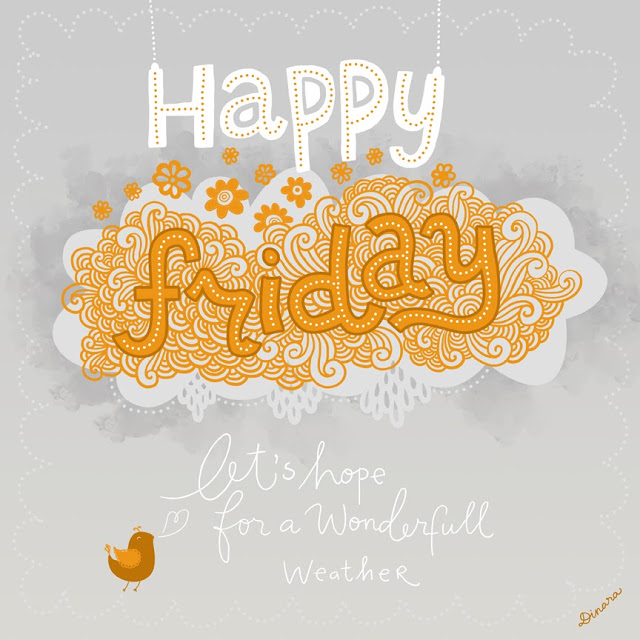 Happy
friday
let's hope
for a Wonderfull
Weather
Dinara